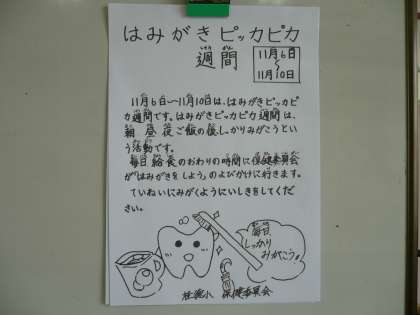 はみがきピッカピカ
週間
11月6日
〜
11月10日
11月6日〜11月10日は、はみがきピッカピ
カ週間です。はみがきピッカピカ週間は、
朝昼夜ご飯の後しっかりみがこうとい
う活動です。
毎日給食のおわりの時間に保健委員会
が「はみがきをしよう」のよびかけに行きます。
ていねいにみがくようにいしきをしてくだ
さい。
毎日
しっかり
みがこう!
保健委員会